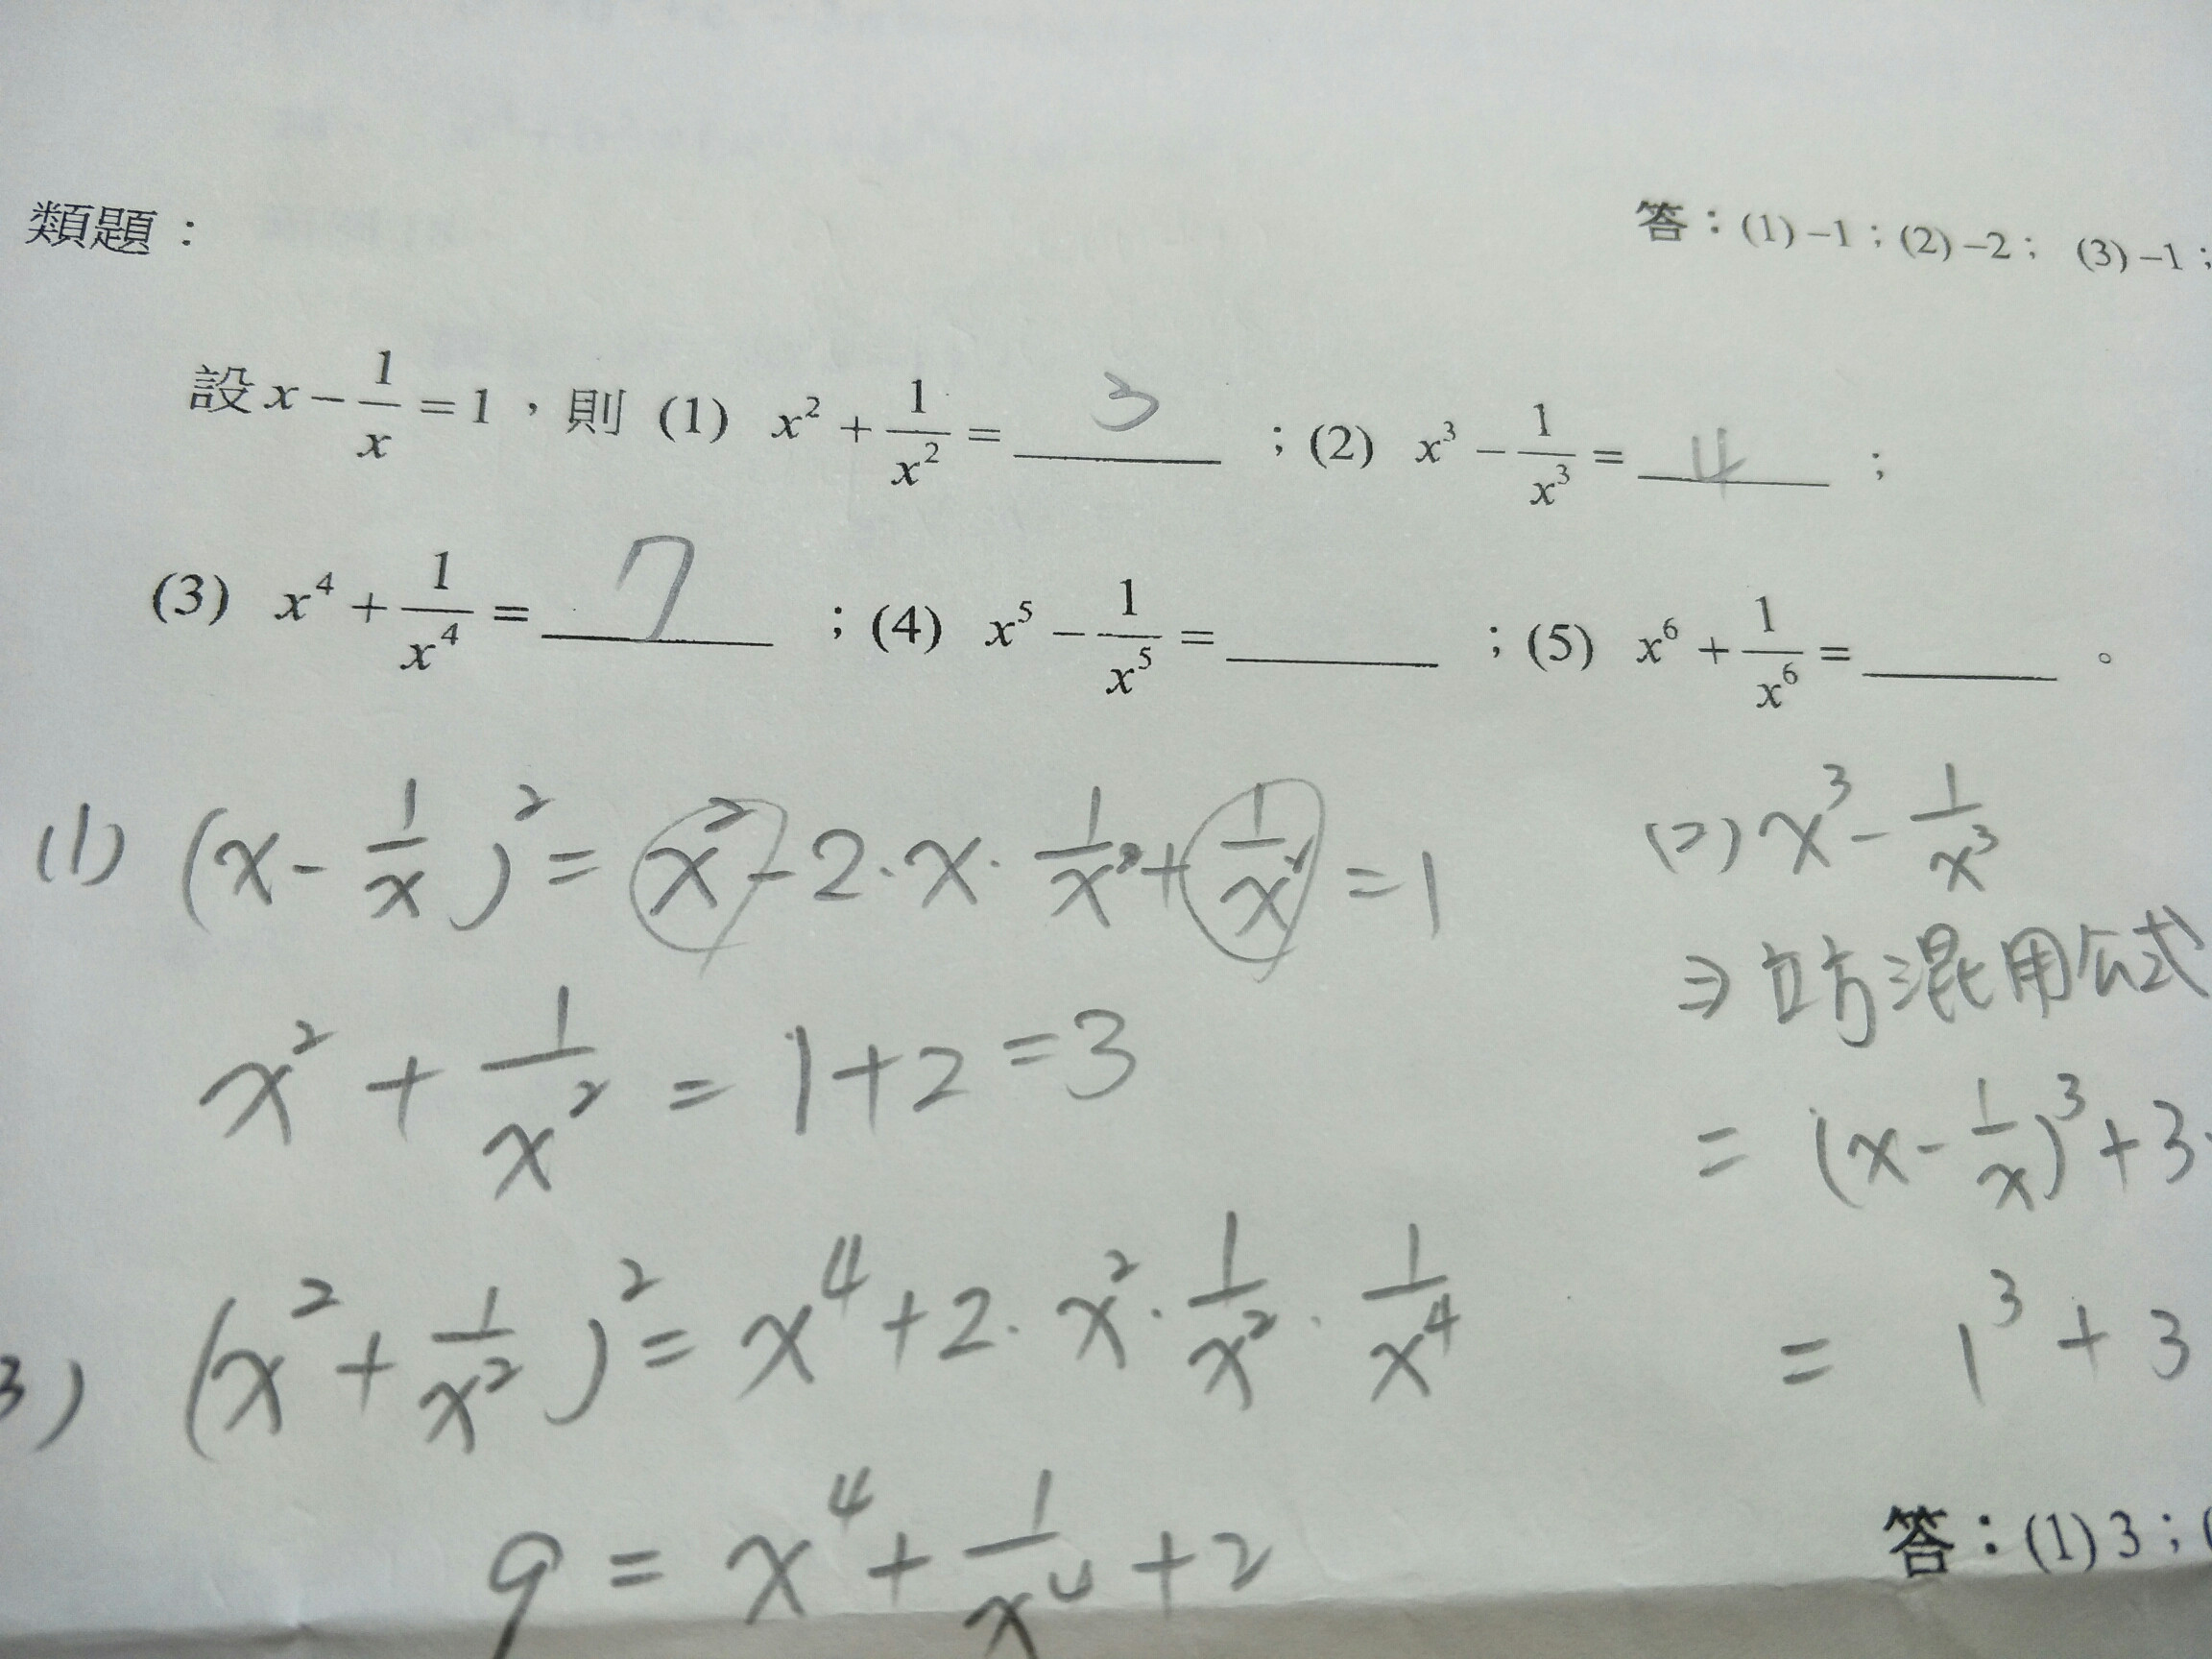 類題：
答：(1) –1；(2) –2； (3) –1；
設 x – 1/x = 1，則 (1) x² + 1/x² = 3 ；(2) x³ – 1/x³ = 4 ；
(3) x⁴ + 1/x⁴ = 7 ；(4) x⁵ – 1/x⁵ = ____ ；(5) x⁶ + 1/x⁶ = ____ 。
(1) (x - 1/x)² = x² - 2·x·1/x + 1/x² = 1
x² + 1/x² = 1+2 = 3
(2) x³ - 1/x³
⇒ 立方混用公式
= (x - 1/x)³ + 3·
= 1³ + 3
3) (x² + 1/x²)² = x⁴ + 2·x²·1/x²·1/x⁴
9 = x⁴ + 1/x⁴ + 2
答：(1) 3；(